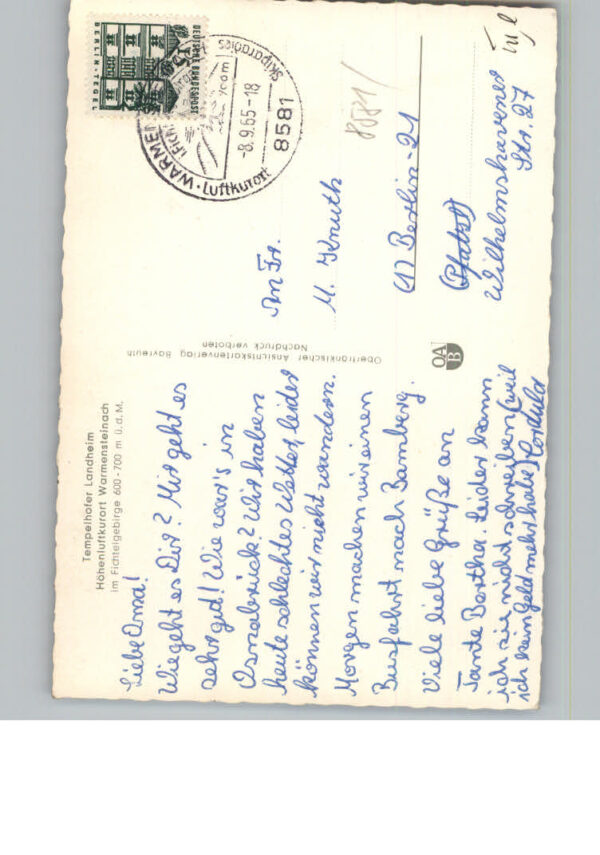 Tempelhofer Landheim
Höhenluftkurort Warmensteinach
im Fichtelgebirge 600-700 m ü.d.M.
Liebe Oma!
Wie geht es Dir? Mir geht es
sehr gut! Wie war's in
Osnabrück? Wir haben
heute schlechtes Wetter, leider
können wir nicht wandern.
Morgen machen wir einen
Busfahrt nach Bamberg.
Viele liebe Grüße an
Tante Berther. Leider kann
ich sie nicht schreiben (weil
ich kein Geld mehr habe) Cordula
Oberfränkischer Ansichtskartenverlag Bayreuth
Nachdruck verboten
OA
B
DEUTSCHE BUNDESPOST
BERLIN-TEGEL
15
WARMEN
Luftkurort
Skiparadies
-8.9.65-18
8581
8581/
An Fr.
M. Knuth
(1) Berlin-21
Wilhelmshavener
Str. 27